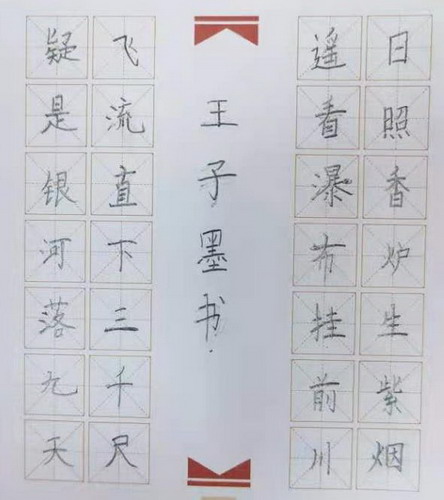 日照香炉生紫烟
遥看瀑布挂前川
王子墨书
飞流直下三千尺
疑是银河落九天